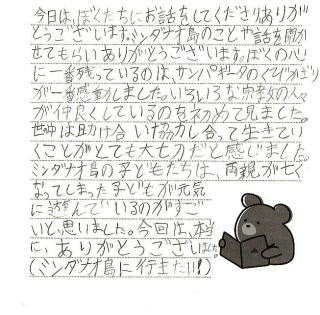 今日は、ぼくたちにお話をしてくださりありが
とうございます。ミンダナオ島のことや話を聞か
せてもらいありがとうございます。ぼくの心
に一番残っているのは、サンパギータの
が一番感動しました。いろいろな宗教の人々
が仲良くしているのを初めて見ました。
世中は助け合い協力し合って生きてい
くことがとても大切だと感じました。
ミンダナオ島の子どもたちは、両親が亡く
なってしまった子どもが元気
に遊んでいるのがすご
いと、思いました。今回は、本当
に、ありがとうございました。
(ミンダナオ島に行きたい!)